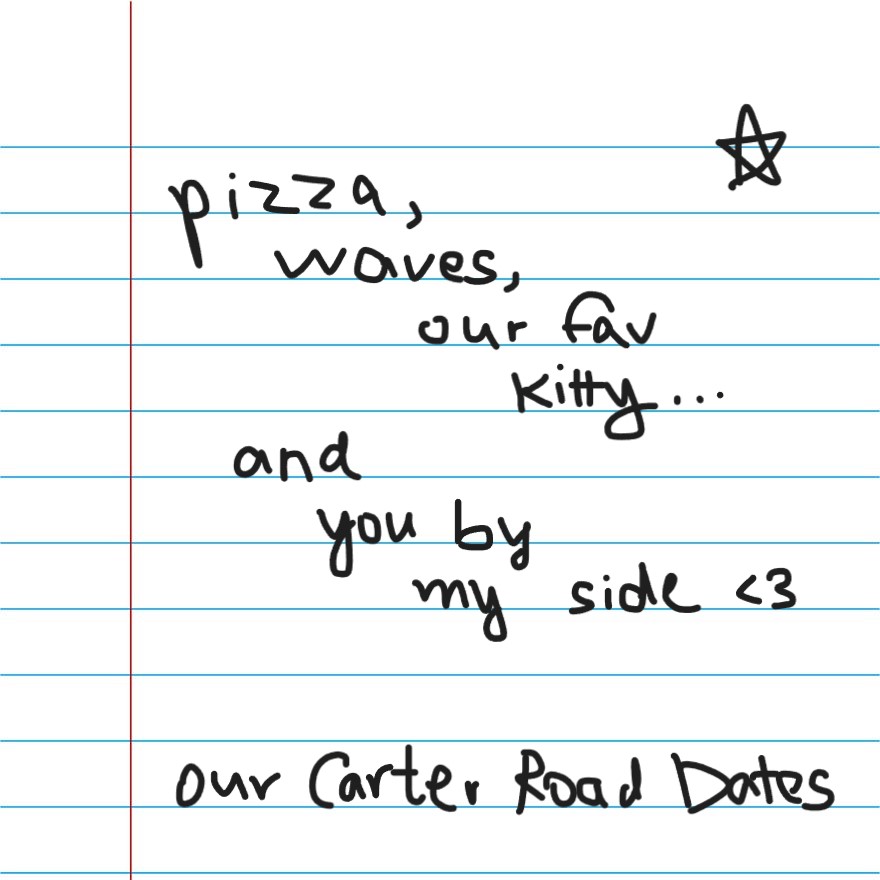 pizza,
waves,
our fav
kitty...
and
you by
my side <3
our Carter Road Dates